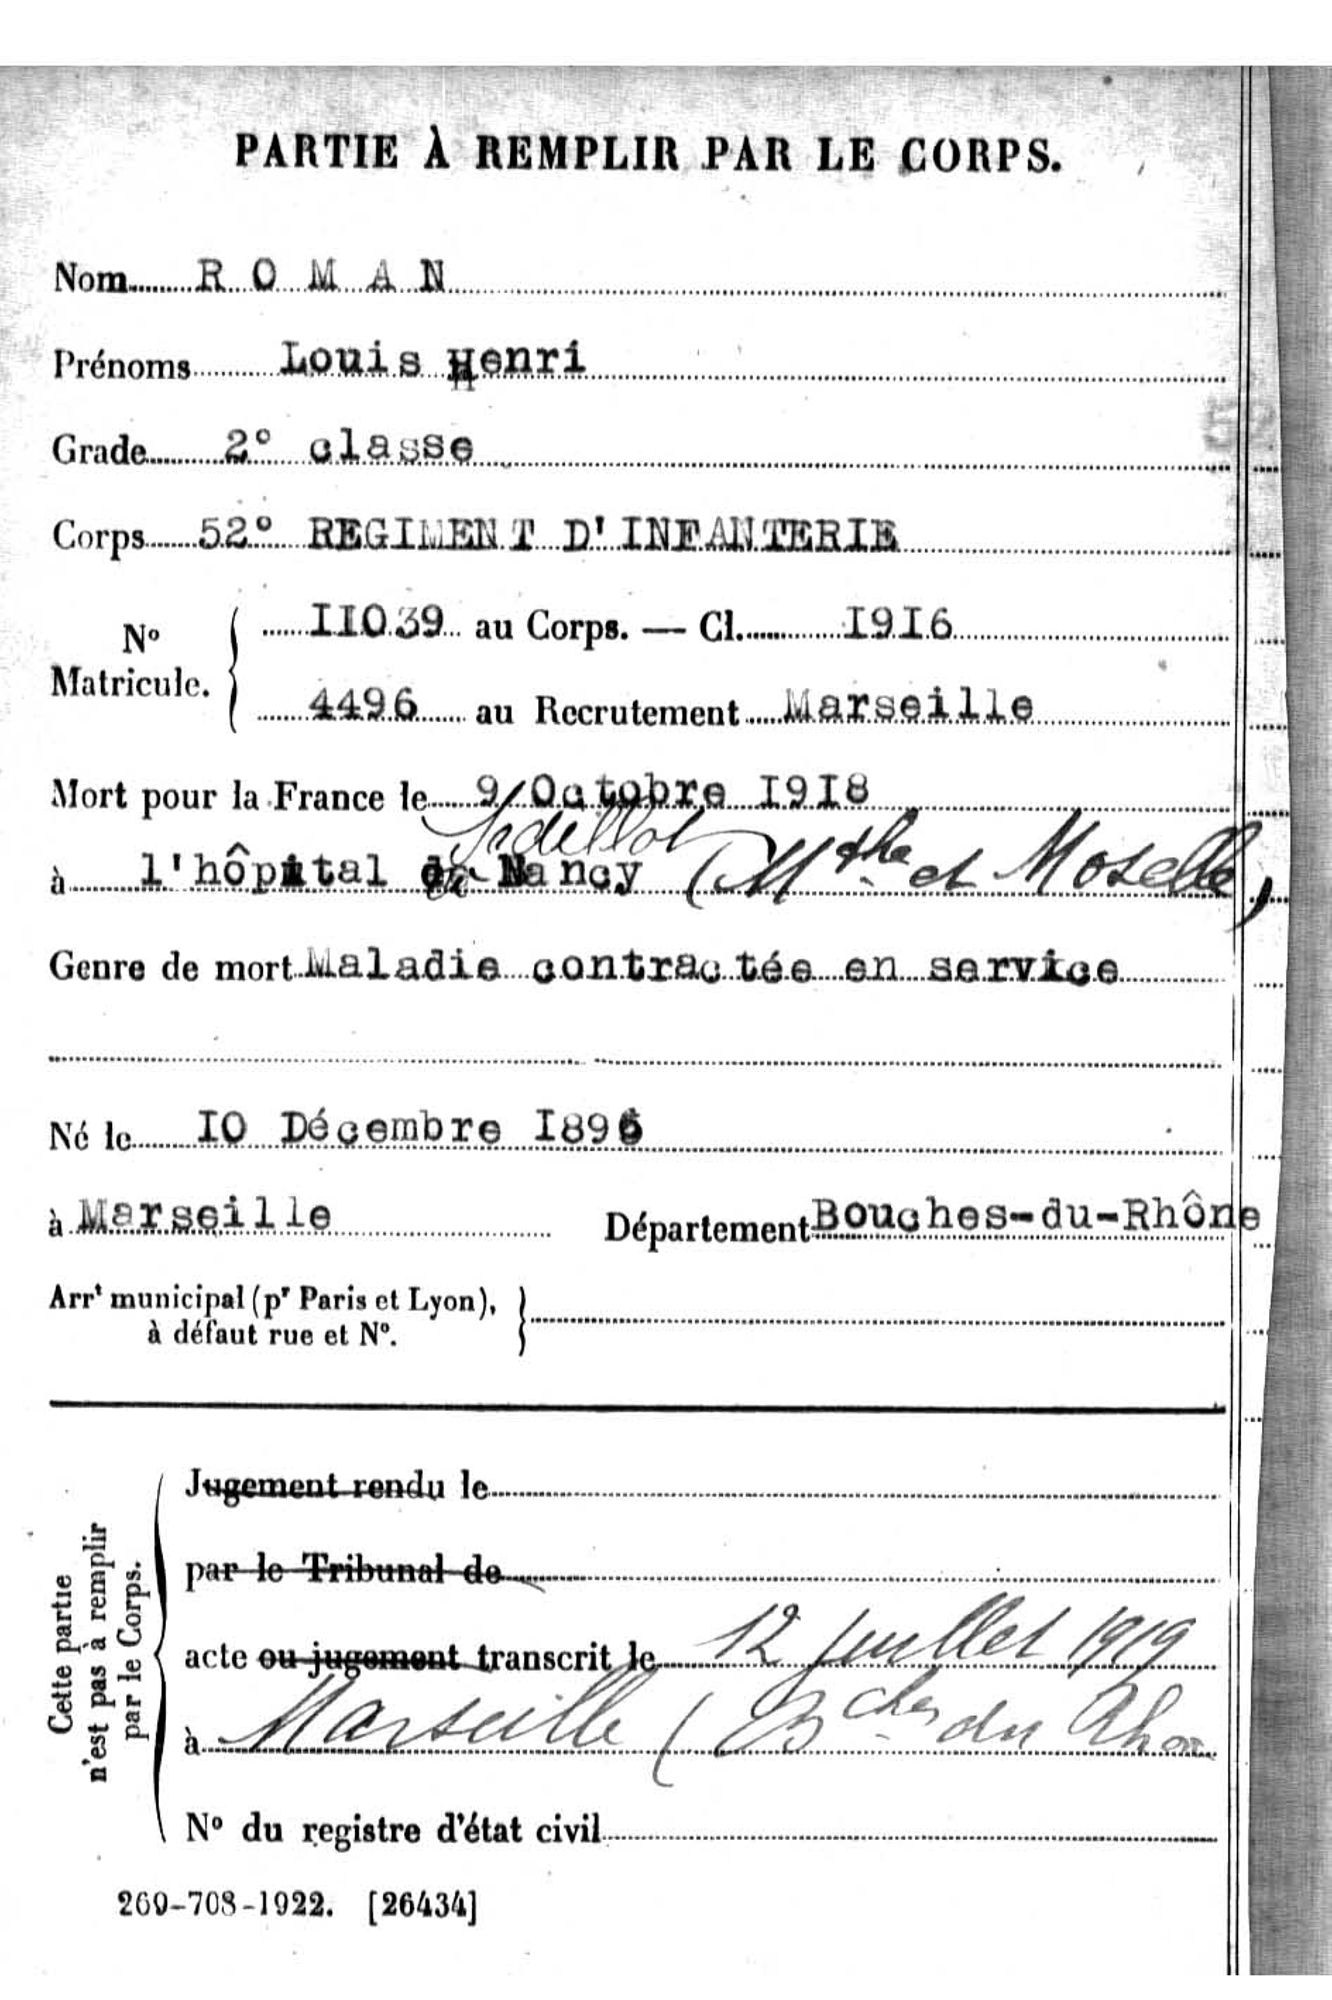 PARTIE À REMPLIR PAR LE CORPS.
Nom R O M A N
Prénoms Louis Henri
Grade 2° classe
Corps 52° REGIMENT D'INFANTERIE
N° Matricule.
II039 au Corps. — Cl. I9I6
4496 au Recrutement Marseille
Mort pour la France le 9 Octobre I9I8
Sedillot
à l'hôpital de Nancy (Mthe et Moselle)
Genre de mort Maladie contractée en service
Né le IO Décembre I896
à Marseille Département Bouches-du-Rhône
Arrt municipal (pr Paris et Lyon),
à défaut rue et N°.
Cette partie
n'est pas à remplir
par le Corps.
Jugement rendu le
par le Tribunal de
acte ou jugement transcrit le 12 Juillet 1919
à Marseille (Bches du Rhone
N° du registre d'état civil
269-708-1922. [26434]